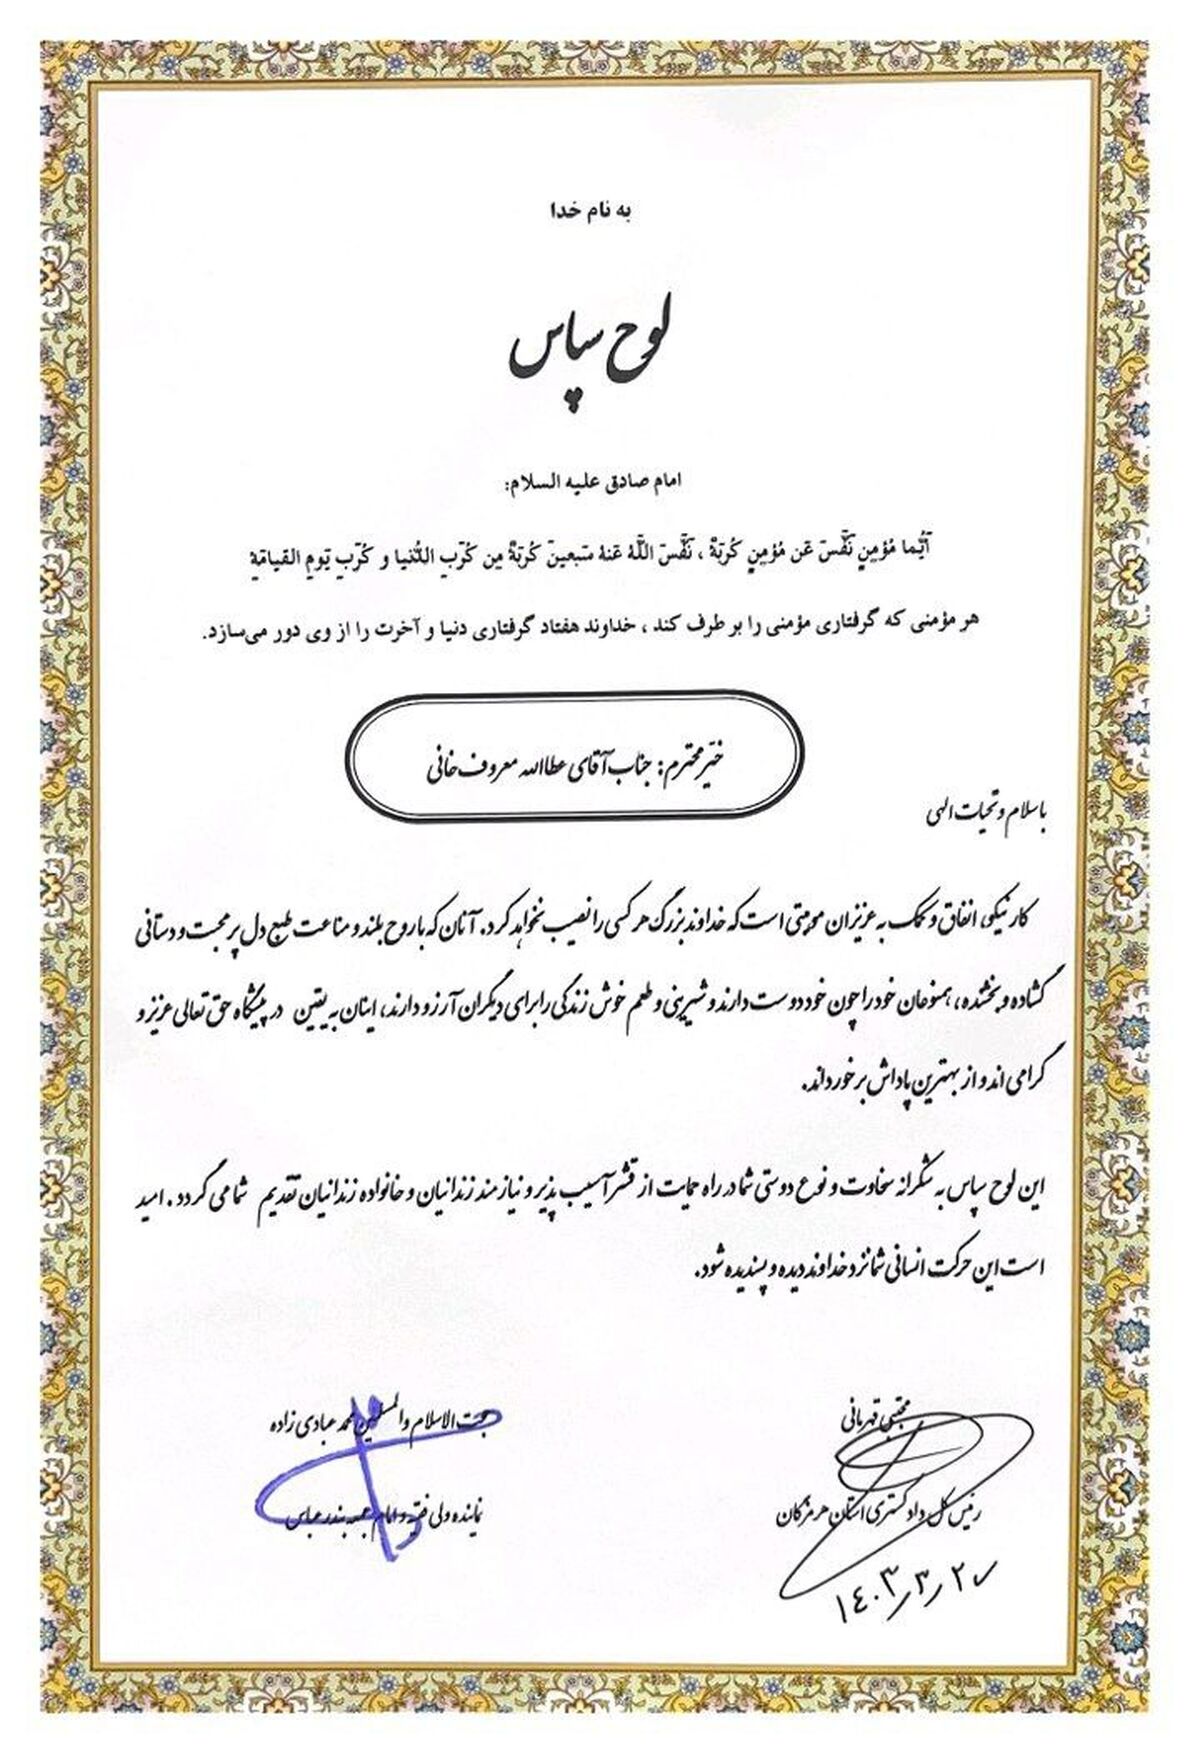 به نام خدا
لوح سپاس
امام صادق علیه السلام:
اَیُّما مُؤمِنٍ نَفَّسَ عَن مُؤمِنٍ کُربَةً ، نَفَّسَ اللَّهُ عَنهُ سَبعینَ کُربَةً مِن کُرَبِ الدُّنیا و کُرَبِ یَومِ القیامَةِ
هر مؤمنی که گرفتاری مؤمنی را بر طرف کند ، خداوند هفتاد گرفتاری دنیا و آخرت را از وی دور می‌سازد.
خیّر محترم: جناب آقای عطاالله معروف خانی
با سلام و تحیات الهی
کار نیکو، انفاق و کمک به عزیزان موهبتی است که خداوند بزرگ هر کسی را نصیب نخواهد کرد. آنان که با روح بلند و مناعت طبع دل پر محبت و دستانی
گشاده و بخشنده، همنوعان خود را چون خود دوست دارند و شیرینی و طعم خوش زندگی را برای دیگران آرزو دارند، اینان به یقین در پیشگاه حق تعالی عزیز و
گرامی اند و از بهترین پاداش برخورداند.
این لوح سپاس به شکرانه سخاوت و نوع دوستی شما در راه حمایت از قشر آسیب پذیر و نیازمند زندانیان و خانواده زندانیان تقدیم شما می گردد. امید
است این حرکت انسانی شما نزد خداوند دیده و پسندیده شود.
مجتبی قهرمانی
رئیس کل دادگستری استان هرمزگان
۱۴۰۳/۳/۲۰
حجت الاسلام والمسلمین محمد عبادی زاده
نماینده ولی فقیه و امام جمعه بندرعباس